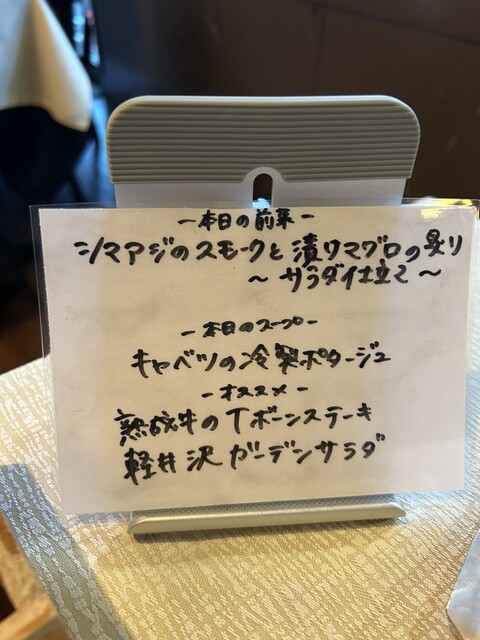 －本日の前菜－
シマアジのスモークと漬けマグロの炙り
～サラダ仕立て～
－本日のスープ－
キャベツの冷製ポタージュ
－オススメ－
熟成牛のTボーンステーキ
軽井沢ガーデンサラダ